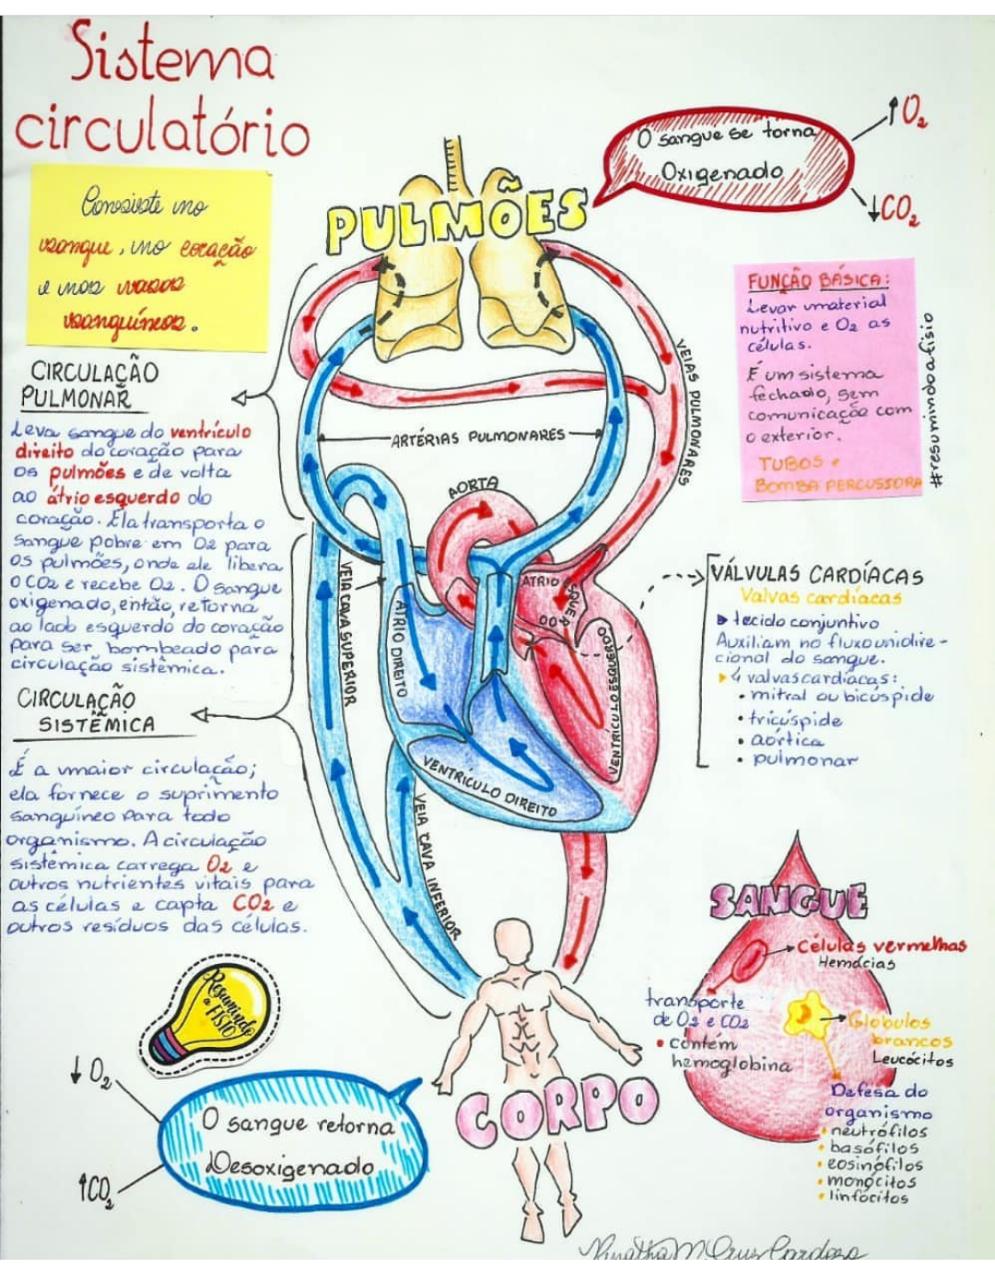 Sistema
circulatório
Consiste no
sangue, no coração
e nos vasos
sanguíneos.
O sangue se torna
Oxigenado
↑O₂
↓CO₂
PULMÕES
FUNÇÃO BÁSICA:
Levar material
nutritivo e O₂ as
células.
É um sistema
fechado, sem
comunicação com
o exterior.
TUBOS +
BOMBA PERCUSSORA
#resumindoafisio
CIRCULAÇÃO
PULMONAR
Leva sangue do ventrículo
direito do coração para
os pulmões e de volta
ao átrio esquerdo do
coração. Ela transporta o
sangue pobre em O2 para
os pulmões, onde ele libera
o CO2 e recebe O2. O sangue
oxigenado, então, retorna
ao lado esquerdo do coração
para ser bombeado para
circulação sistêmica.
CIRCULAÇÃO
SISTÊMICA
É a maior circulação;
ela fornece o suprimento
sanguíneo para todo
organismo. A circulação
sistêmica carrega O2 e
outros nutrientes vitais para
as células e capta CO2 e
outros resíduos das células.
VEIAS PULMONARES
ARTÉRIAS PULMONARES
AORTA
VEIA CAVA SUPERIOR
ÁTRIO DIREITO
ÁTRIO
ESQUER
DO
VENTRÍCULO ESQUERDO
VENTRÍCULO DIREITO
VEIA CAVA INFERIOR
VÁLVULAS CARDÍACAS
Valvas cardíacas
tecido conjuntivo
Auxiliam no fluxo unidire-
cional do sangue.
4 valvas cardíacas:
• mitral ou bicúspide
• tricúspide
• aórtica
• pulmonar
SANGUE
Células vermelhas
Hemácias
transporte
de O2 e CO2
• contém
hemoglobina
Glóbulos
brancos
Leucócitos
Defesa do
organismo
• neutrófilos
• basófilos
• eosinófilos
• monócitos
• linfócitos
Resumindo
a FISIO
↓ O₂
↑CO₂
O sangue retorna
Desoxigenado
CORPO